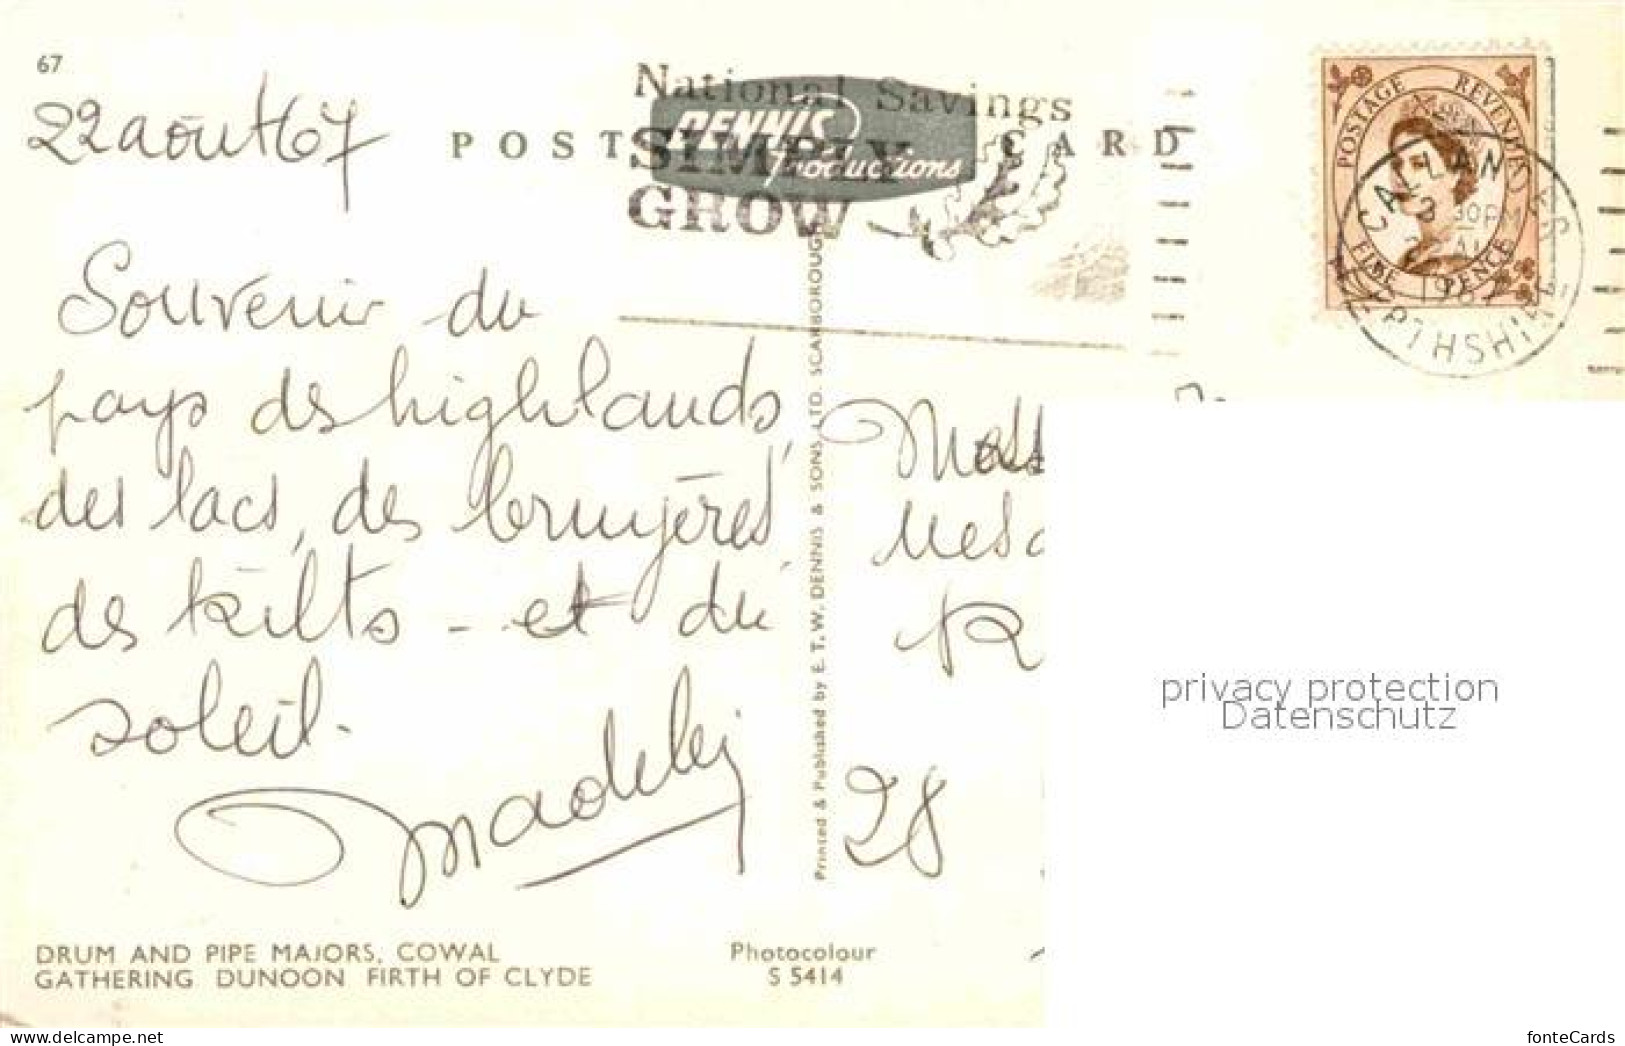 67
22 août 67
POST CARD
DENNIS
Productions
National Savings
SIMPLY
GROW
POSTAGE REVENUE
FIVE PENCE
CALLANDER
30PM
PERTHSHIRE
Souvenir du
pays des highlands,
des lacs, des bruyères,
des kilts - et du
soleil.
28
Printed & Published by E. T. W. DENNIS & SONS LTD. SCARBOROUGH
privacy protection
Datenschutz
DRUM AND PIPE MAJORS, COWAL
GATHERING DUNOON FIRTH OF CLYDE
Photocolour
S 5414
www.delcampe.net
fonteCards